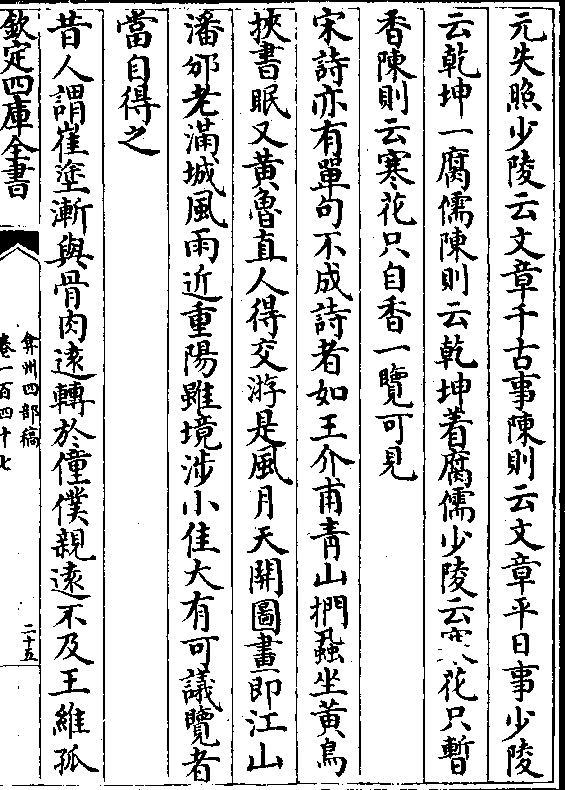 元失照少陵云文章千古事陳則云文章平日事少陵
云乾坤一腐儒陳則云乾坤着腐儒少陵云寒花只暫
香陳則云寒花只自香一覽可見
宋詩亦有單句不成詩者如王介甫青山捫蝨坐黃鳥
挾書眠又黃魯直人得交游是風月天開圖畫即江山
潘邠老滿城風雨近重陽雖境涉小佳大有可議覽者
當自得之
昔人謂崔塗漸與骨肉遠轉於僮僕親遠不及王維孤
欽定四庫全書
弇州四部稿
卷一百四十七
二十五